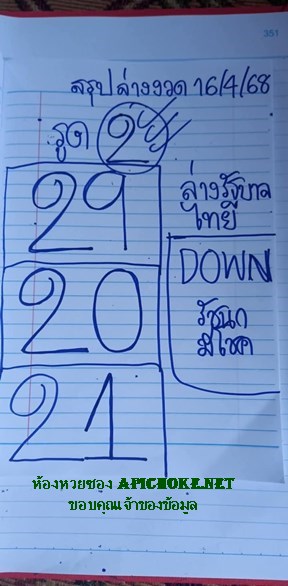 351
สรุปล่างงวด 16/4/68
รูด 2
29
ล่างรัฐบาล
ไทย
20
DOWN
มีโชค
21
ห้องหวยซอง APICHOKE.NET
ขอบคุณเจ้าของข้อมูล